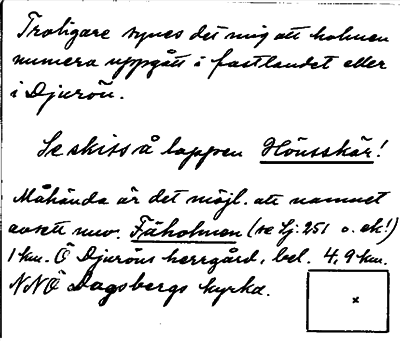 Troligare synes det mig att holmen
numera uppgått i fastlandet eller
i Djurön.
Se skiss å lappen Hönsskär!
Måhända är det möjl. att namnet
avsett nuv. Fäholmen (se Lj. 251 o. ek!)
1 km. Ö Djuröns herrgård, bel. 4,9 km.
NNÖ Dagsbergs kyrka.
x